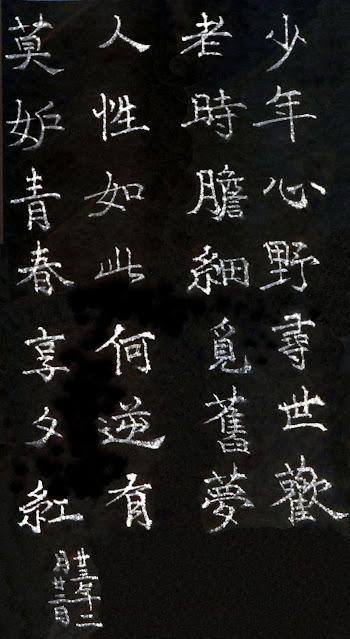 少年心野尋世歡
老時膽細覓舊夢
人性如此何逆有
莫妒青春享夕紅
廿三年二
月廿二日